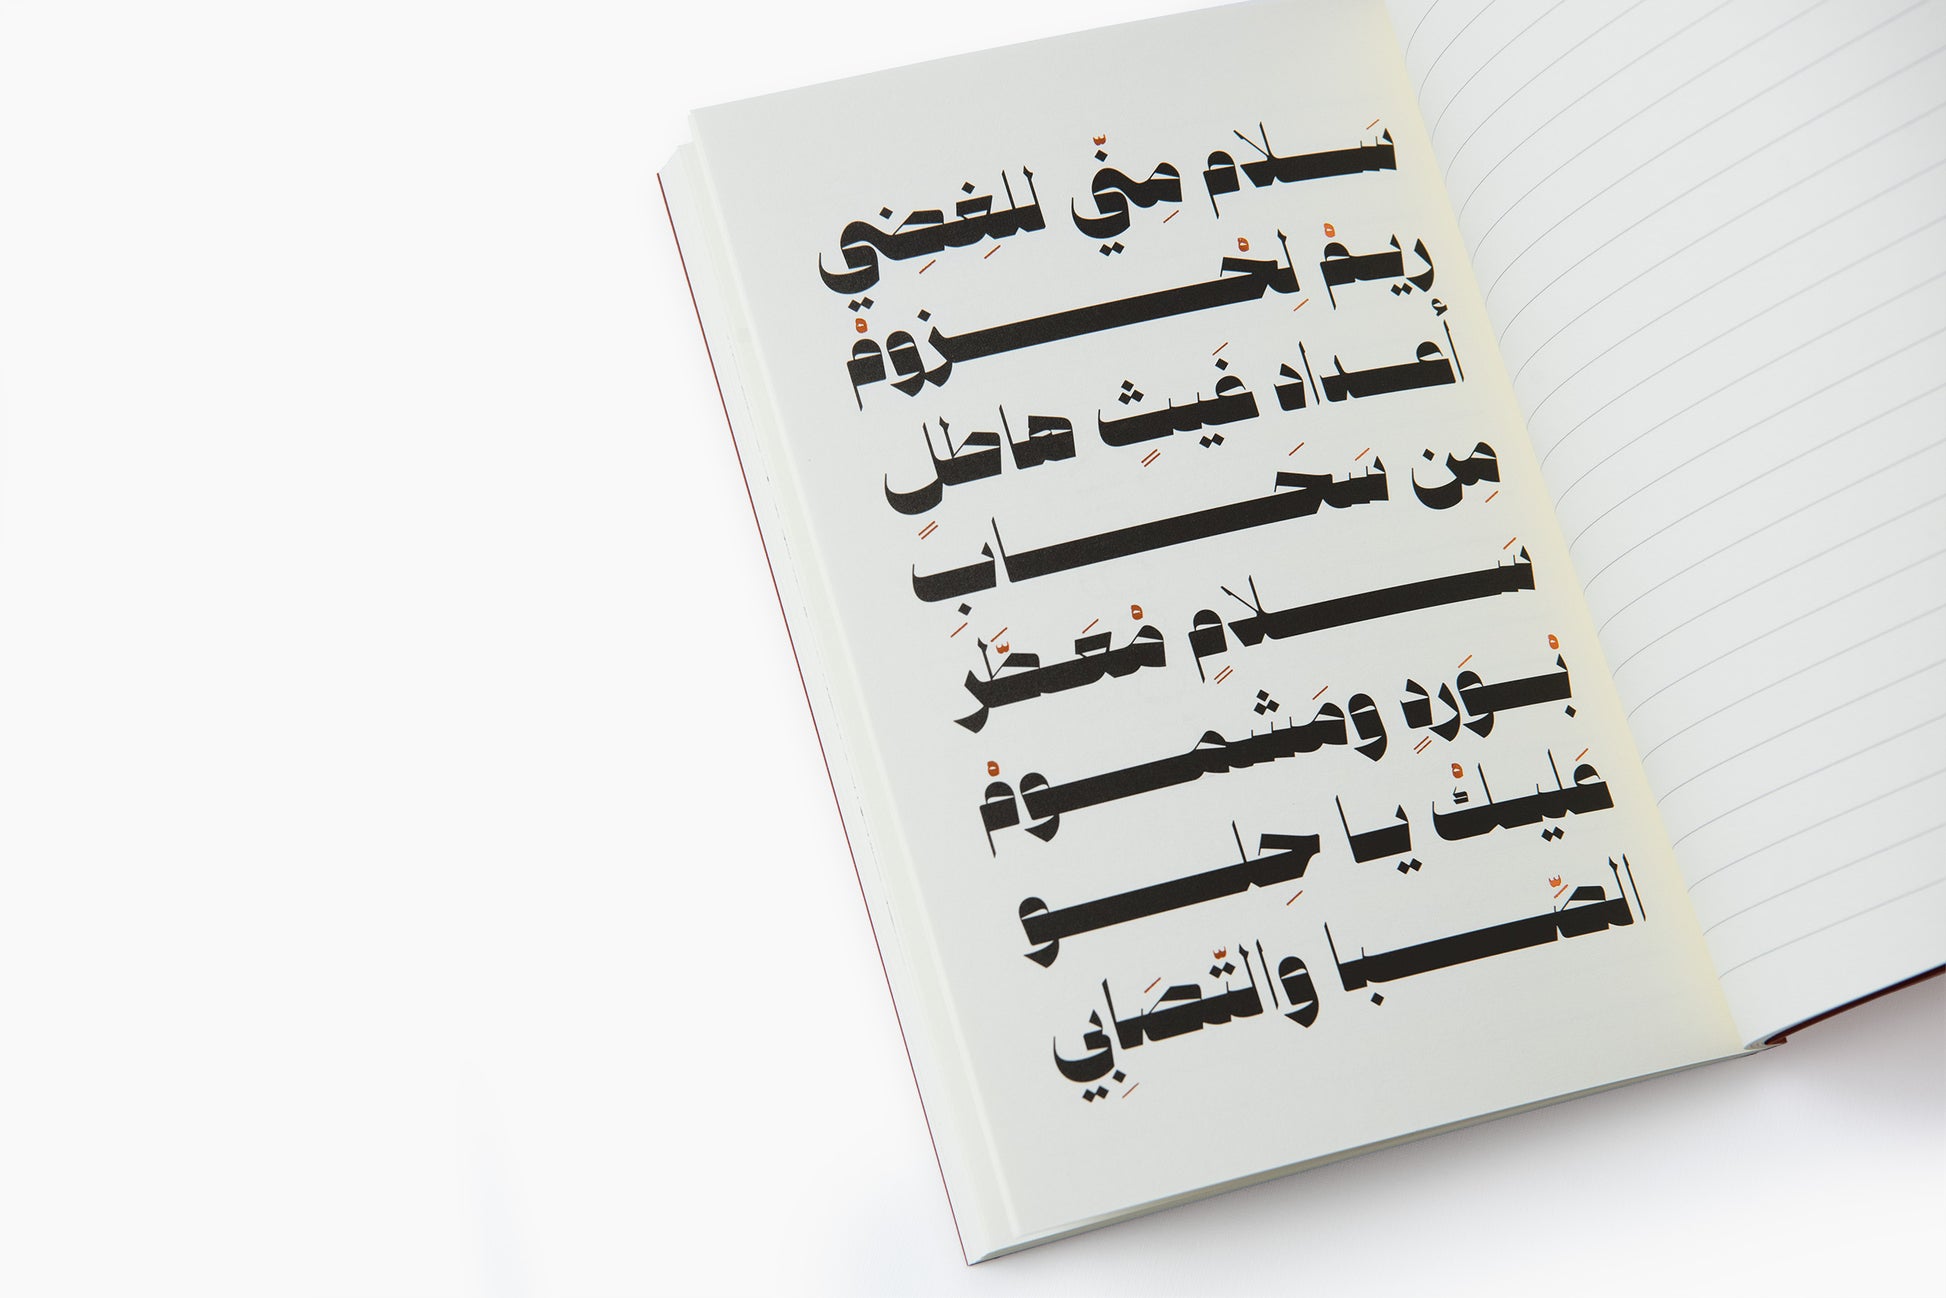 سَلام مِنّي للغِضِي
ريمْ لِخْزومْ
أعداد غَيثٍ هاطلٍ
مِن سَحَابِ
سَلامٍ مْعَطَّر
بْوَردٍ ومَشمومْ
عَليكْ يا حِلو
الصِّبا والتّصَابِي